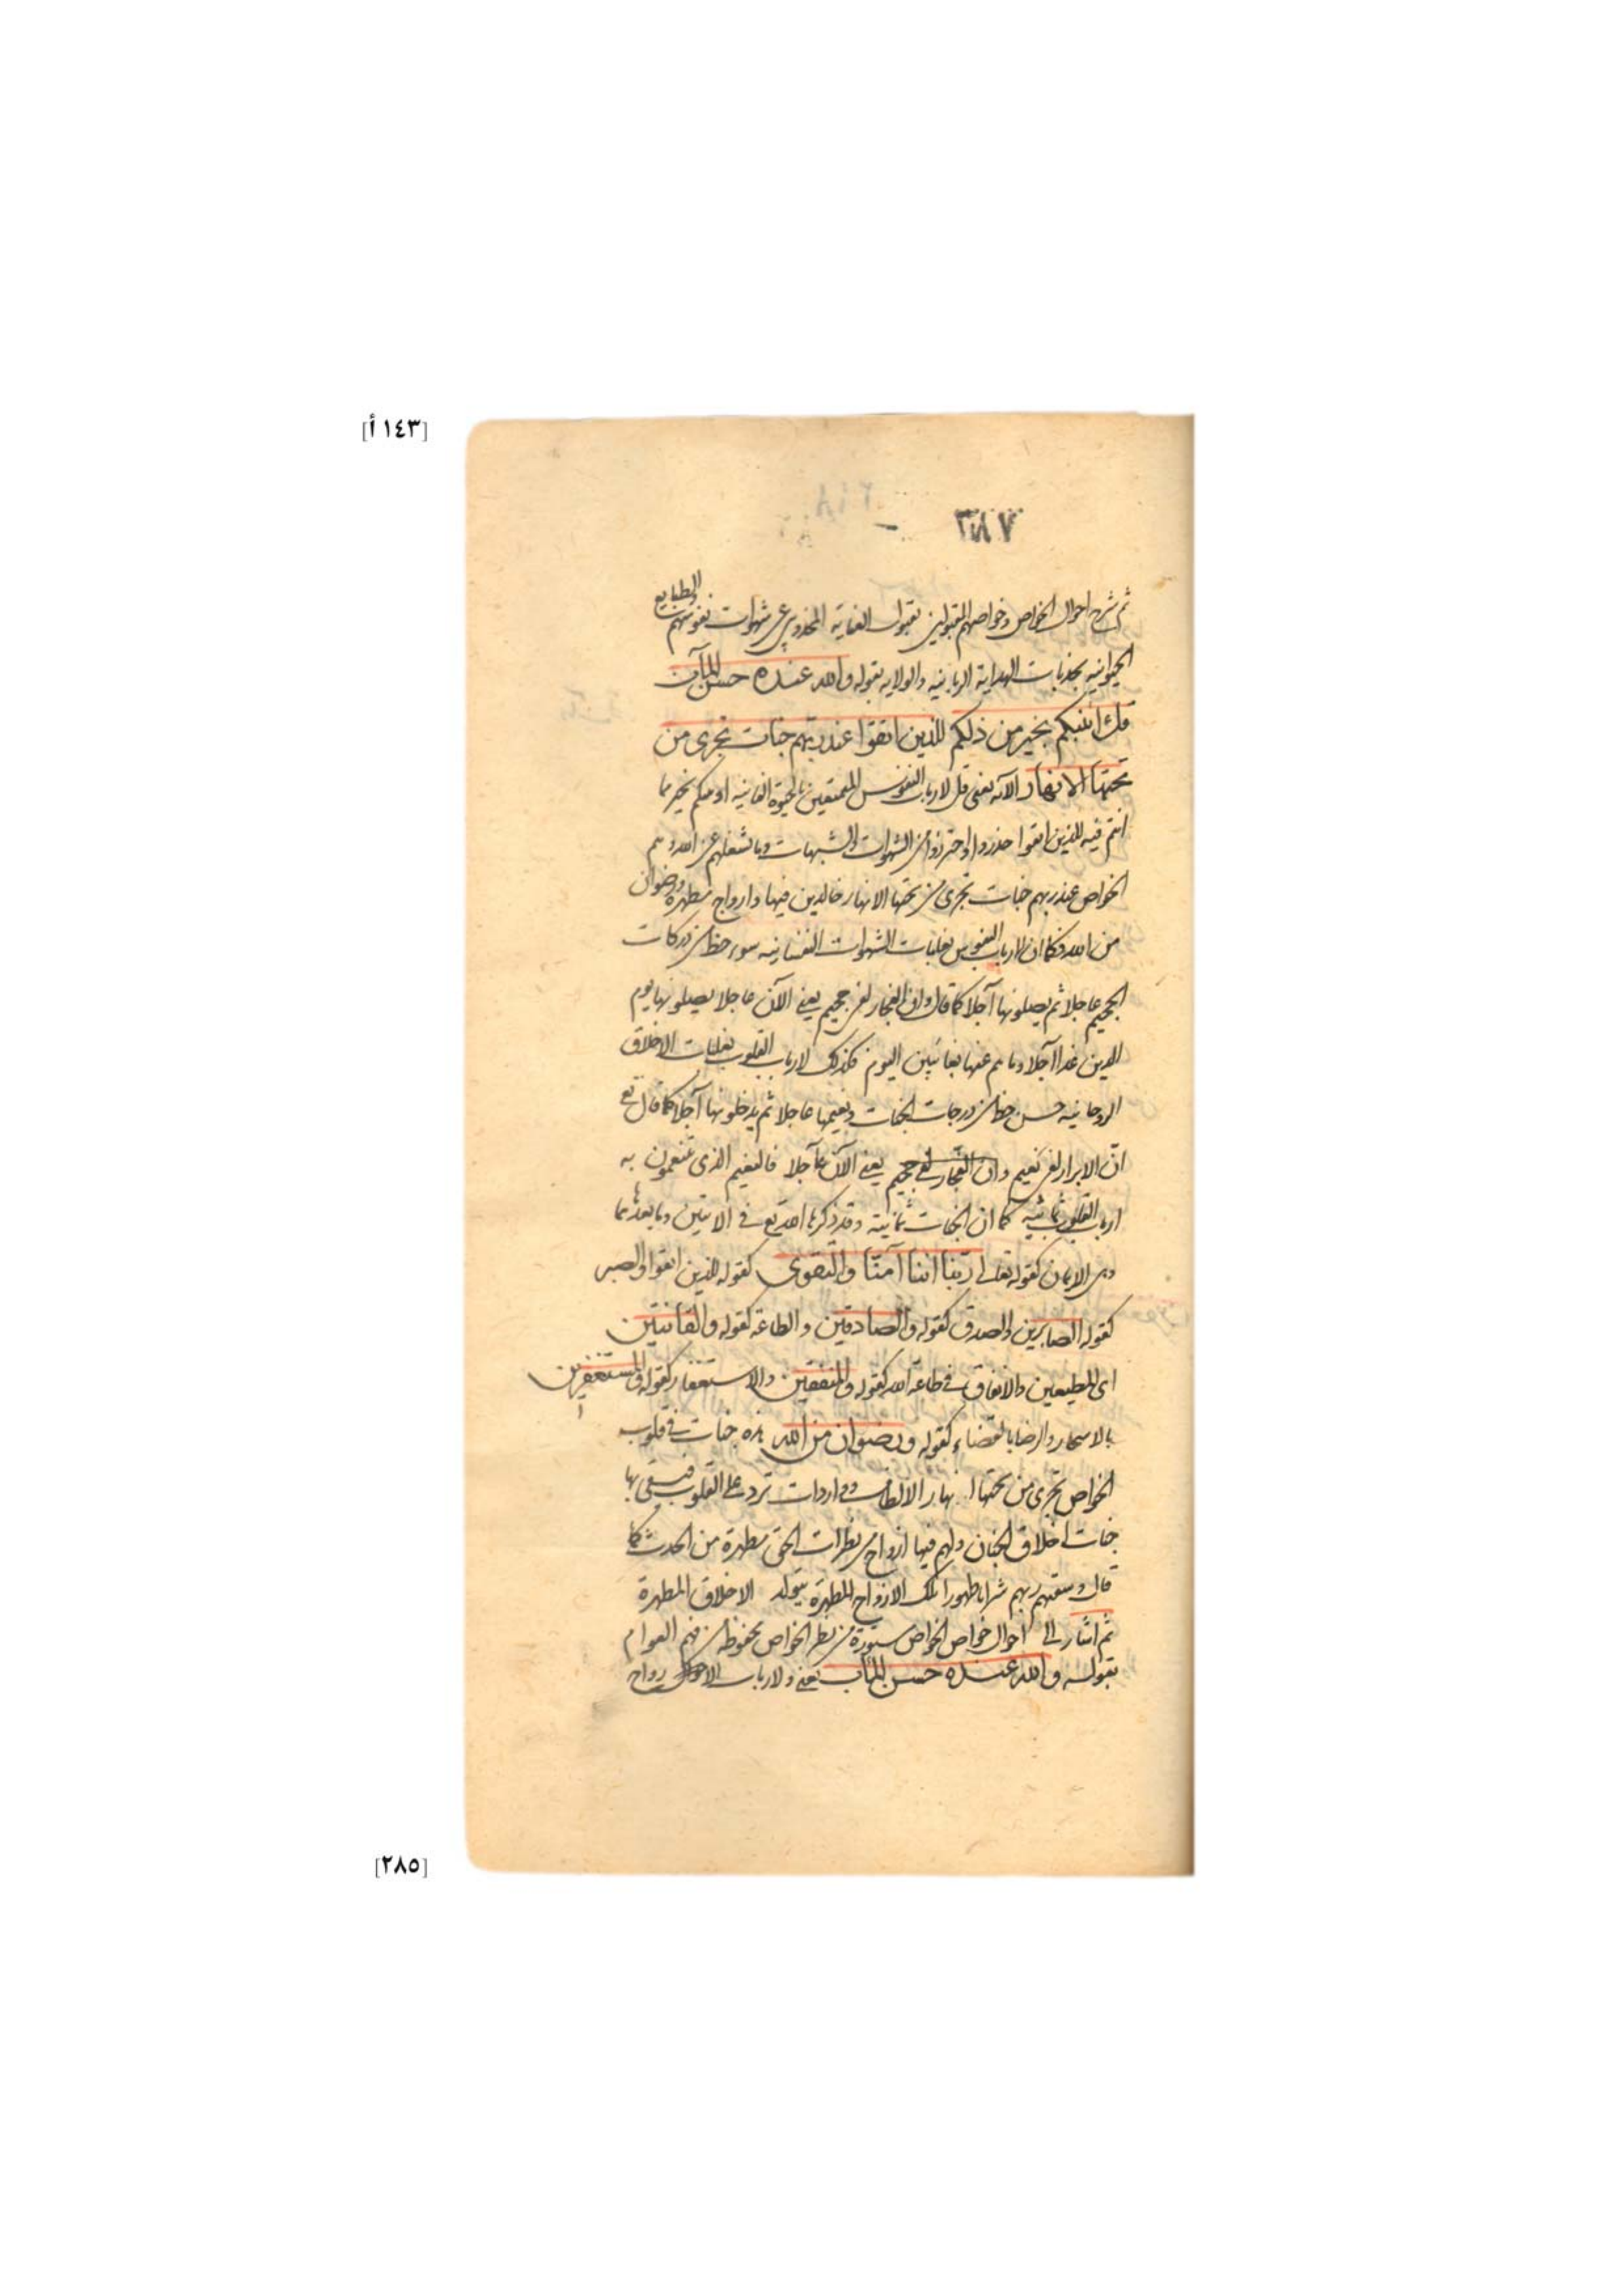 [١٤٣ أ]
٣٨٧
ثم شرح احوال الخواص وخواصهم المقبولين بقبول العناية المجذوبين عن شهوات نفوسهم والطبايع
الحيوانيه بجذبات الهداية الربانيه والولايه بقوله والله عنده حسن المآب
قل اؤنبئكم بخير من ذلكم للذين اتقوا عند ربهم جنات تجرى من
تحتها الانهار الآيه يعنى قل لارباب النفوس المتمتعين بالحيوة الفانيه اونبئكم بخير مما
انتم فيه للذين اتقوا حذروا واحترزوا من الشهوات والشبهات وما يشغلهم عن الله وهم
الخواص عند ربهم جنات تجرى من تحتها الانهار خالدين فيها وازواج مطهرة ورضوان
من الله فكما ان لارباب النفوس بغلبات الشهوات النفسانيه سوء حظ من دركات
الجحيم عاجلا ثم يصلونها آجلا كما قال وان الفجار لفى جحيم يعنى الآن عاجلا يصلونها يوم
الدين غدا آجلا وما هم عنها بغائبين اليوم فكذلك لارباب القلوب بغلبات الاخلاق
الروحانيه حسن حظ من درجات الجنات ونعيمها عاجلا ثم يدخلونها آجلا كما قال تع
ان الابرار لفى نعيم وان الفجار لفى جحيم يعنى الآن عاجلا فالنعيم الذى يتنعمون به
ارباب القلوب ثمانية كما ان الجنات ثمانية وقد ذكرها الله تع فى الايتين وما بعدهما
وهى الايمان كقوله تعالى ربنا اننا آمنا والتقوى كقوله للذين اتقوا والصبر
كقوله الصابرين والصدق كقوله والصادقين والطاعة كقوله والقانتين
اى المطيعين والانفاق فى طاعة الله كقوله والمنفقين والاستغفار كقوله والمستغفرين
بالاسحار والرضا بالقضاء كقوله ورضوان من الله هذه جنات فى قلوب
الخواص تجرى من تحتها انهار الالطاف وواردات ترد على القلوب فيسقى بها
جنات اخلاق الجنان ولهم فيها ازواج من نظرات الحق مطهرة من الحدث كما
قال وسقيهم ربهم شرابا طهورا تلك الازواج المطهرة يتولد الاخلاق المطهرة
ثم اشار الى احوال خواص الخواص مستورة من نظر الخواص محفوظة من فهم العوام
بقوله والله عنده حسن المآب يعنى ولارباب
[٢٨٥]